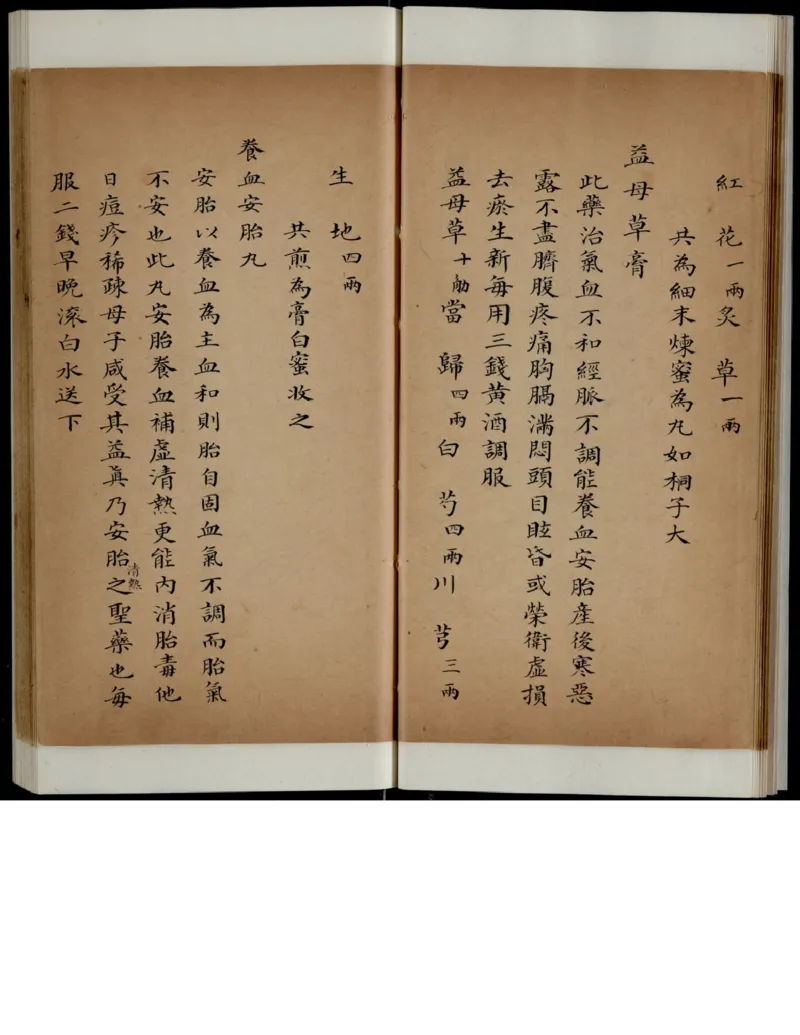 紅花一兩炙草一兩
共為細末煉蜜為丸如桐子大
益母草膏
此藥治氣血不和經脈不調能養血安胎產後寒惡
露不盡臍腹疼痛胸膈滿悶頭目眩昏或榮衛虛損
去瘀生新每用三錢黃酒調服
益母草十觔當歸四兩白芍四兩川芎三兩
生地四兩
共煎為膏白蜜收之
養血安胎丸
安胎以養血為主血和則胎自固血氣不調而胎氣
不安也此丸安胎養血補虛清熱更能內消胎毒他
日痘疹稀疎母子咸受其益真乃安胎之聖藥也每
清熱
服二錢早晚滚白水送下